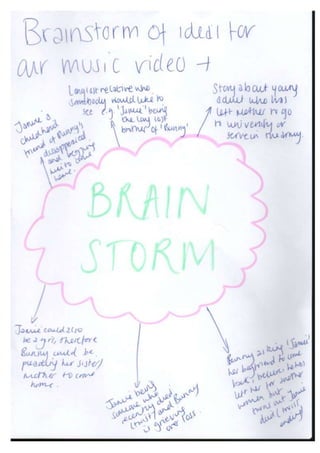 Brainstorm of ideas for
our music video →
Long lost relative who
somebody would like to
see e.g. 'Jamie' being
the long lost
brother of 'Bunny'
Story about young
adult who has
left mother to go
to university or
serve in the army.
Jamie is
childhood
friend of Bunny's
disappeared
and begging
him to come
home.
BRAIN
STORM
Jamie could also
be a girl, therefore
Bunny could be
pleading her sister/
mother to come
home.
Jamie being
someone who
recently died
(twist) and Bunny
is grieving
over loss.
Bunny asking 'Jamie'
her boyfriend to come
back, believes he has
left her for another
women but
turns out Jamie
died (twist
ending)